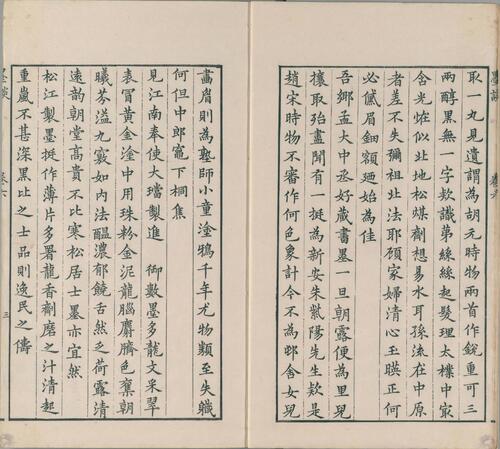 取一九見遺謂為胡元時物兩首作銳重可三
兩醇黑無一字款識第絲絲起髮理太樸中㝡
含光恠似北地松煤劑想易水耳孫流在中原
者差不失彌祖北法耶顧家婦清心玉暎正何
必儀眉鈿額廼始為佳
吾鄉孟大中丞好藏書墨一旦朝露便為里兒
攘取殆盡聞有一挺為新安朱紫陽先生款是
趙宋時物不審作何色象計今不為邨舍女兒
畫眉則為塾師小童塗鴉千年尤物類至失職
何但中郎竈下桐焦
見江南奉使大璫製進　御數墨多龍文采翠
表冐黃金塗中用珠粉金泥龍腦麝臍色奪朝
曦芬溢九竅如內法醞濃郁饒舌然乏荷露清
遠韵朝堂高貴不比寒松居士墨亦宜然
松江製墨挺作薄片多署龍香劑磨之汁清起
重嵐不甚深黑比之士品則逸民之儔
卷六
三